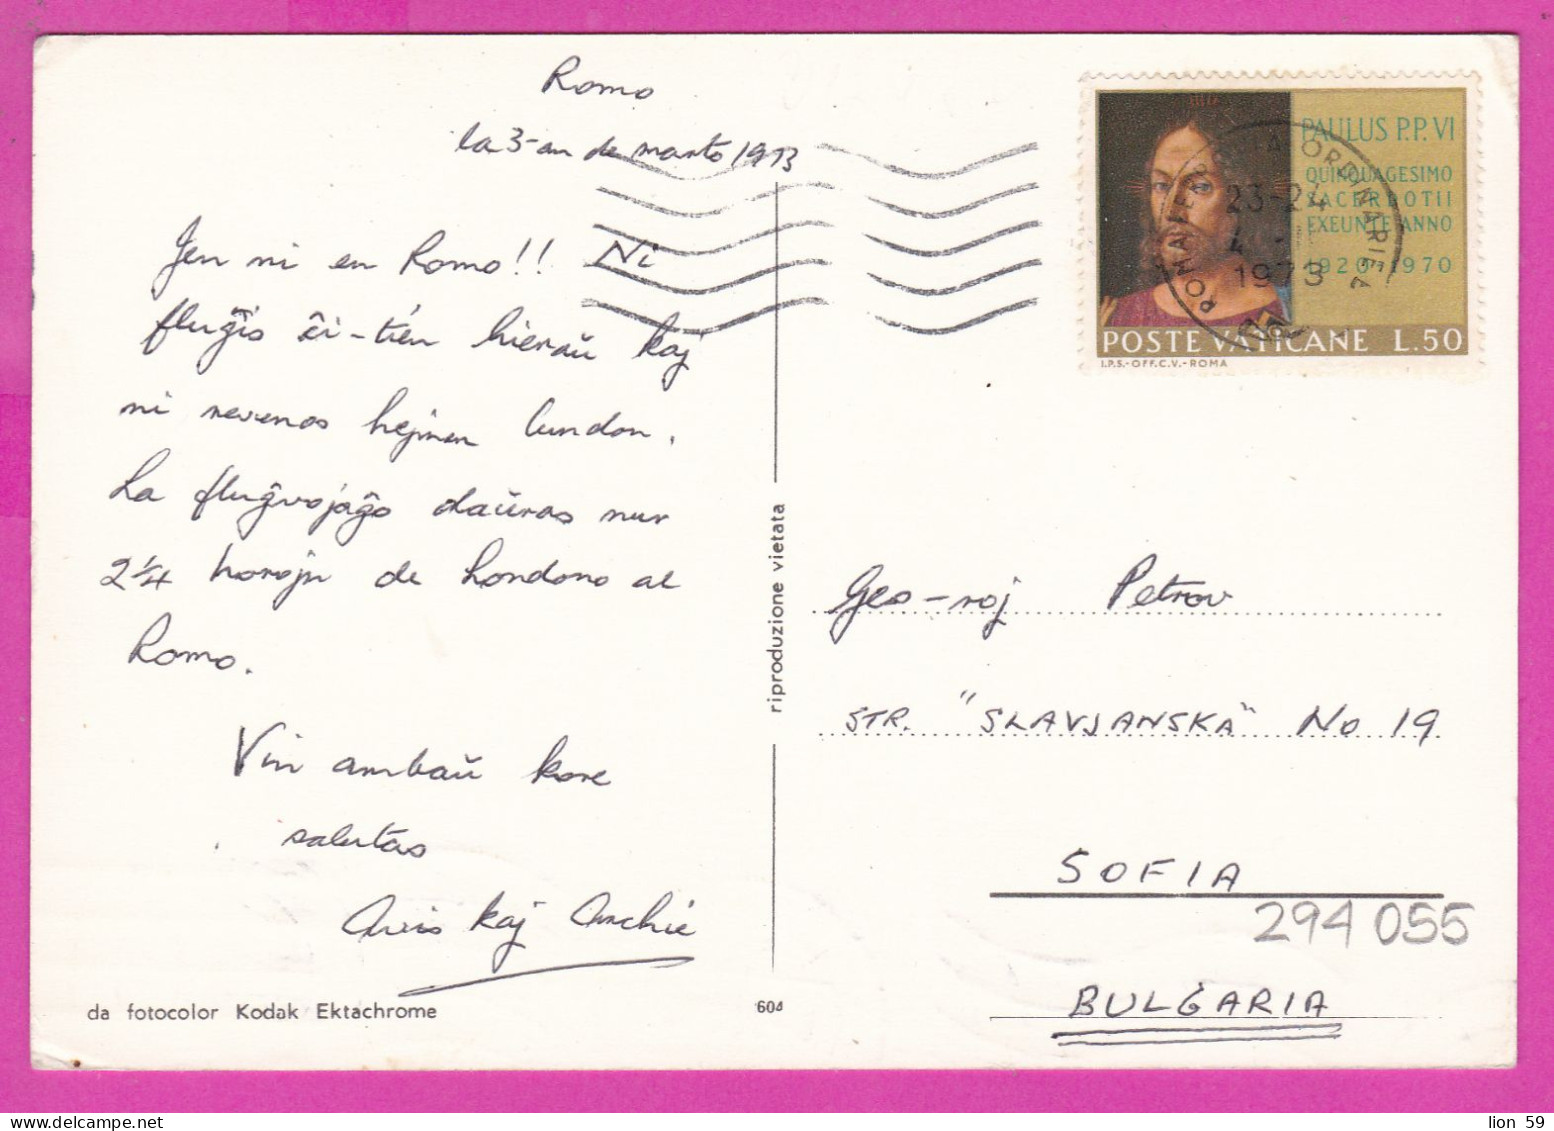 Romo
la 3-an de marto 1973
Jen ni en Romo!! Ni
fluĝis ĉi-tien hieraŭ kaj
ni revenos hejmen lundon.
La fluĝvojaĝo daŭras nur
2 1/4 horojn de Londono al
Romo.
Vin ambaŭ kore
salutas
kaj Archie
da fotocolor Kodak Ektachrome
604
riproduzione vietata
PAULUS P.P. VI
QUINQUAGESIMO
SACERDOTII
EXEUNTE ANNO
1920-1970
POSTE VATICANE L.50
I.P.S.-OFF.C.V.-ROMA
23-24
1973
Geo-roj Petrov
STR. "SLAVJANSKA" No 19
SOFIA
294 055
BULGARIA
lion 59